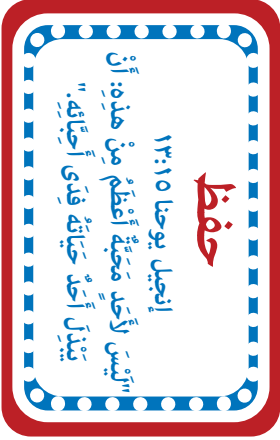 حفظ
إنجيل يوحنا ١٣:١٥
"لَيْسَ لأَحَدٍ مَحَبَّةٌ أَعْظَمُ مِنْ هَذِهِ: أَنْ
يَبْذِلَ أَحَدٌ حَيَاتَهُ فِدَى أَحِبَّائِهِ."